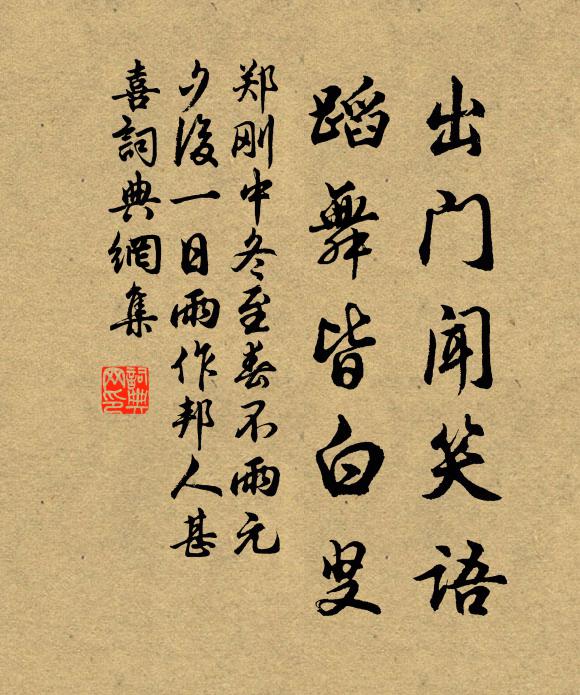 出门闻笑语
蹈舞皆白叟
郑刚中冬至春不雨元
夕后一日雨作邦人甚
喜詞典網集
詞典
网印